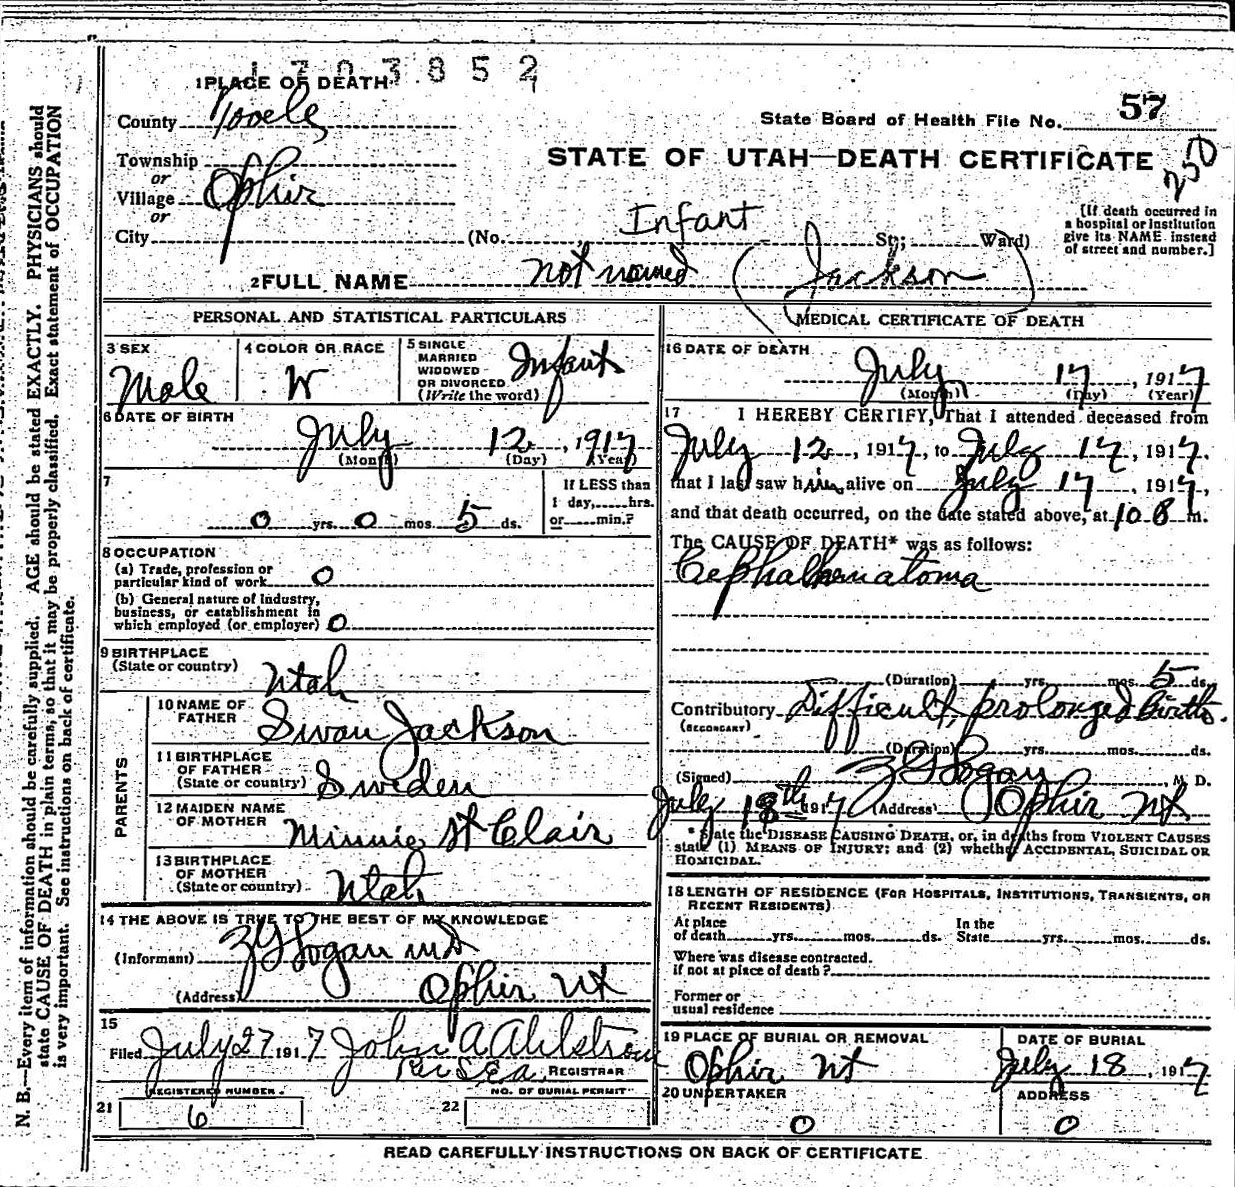 1703852
1 PLACE OF DEATH
County Tooele
State Board of Health File No. 57
Township
or
Village Ophir
or
City
STATE OF UTAH—DEATH CERTIFICATE
250
(No. Infant St.; Ward)
[If death occurred in
a hospital or institution
give its NAME instead
of street and number.]
2 FULL NAME not named (Jackson)
PERSONAL AND STATISTICAL PARTICULARS
3 SEX
Male
4 COLOR OR RACE
W
5 SINGLE
MARRIED
WIDOWED
OR DIVORCED
(Write the word)
Infant
6 DATE OF BIRTH
July 12, 1917
(Month) (Day) (Year)
7
0 yrs. 0 mos. 5 ds.
If LESS than
1 day, hrs.
or min.?
8 OCCUPATION
(a) Trade, profession or
particular kind of work 0
(b) General nature of industry,
business, or establishment in
which employed (or employer) 0
9 BIRTHPLACE
(State or country)
Utah
PARENTS
10 NAME OF
FATHER
Swan Jackson
11 BIRTHPLACE
OF FATHER
(State or country) Sweden
12 MAIDEN NAME
OF MOTHER
Minnie St Clair
13 BIRTHPLACE
OF MOTHER
(State or country) Utah
14 THE ABOVE IS TRUE TO THE BEST OF MY KNOWLEDGE
(Informant) Logan MD
(Address) Ophir Ut
15
Filed July 27 1917 John A Ahlstrom
REGISTRAR
REGISTERED NUMBER
21 6
NO. OF BURIAL PERMIT
22
MEDICAL CERTIFICATE OF DEATH
16 DATE OF DEATH
July 17, 1917
(Month) (Day) (Year)
17 I HEREBY CERTIFY, That I attended deceased from
July 12, 1917, to July 17, 1917,
that I last saw him alive on July 17, 1917,
and that death occurred, on the date stated above, at 10 m.
The CAUSE OF DEATH* was as follows:
Cephalhematoma
(Duration) yrs. mos. 5 ds.
Contributory Difficult, prolonged Birth.
(SECONDARY)
(Duration) yrs. mos. ds.
(Signed) Logan, M. D.
July 18th 1917 (Address) Ophir Ut
* State the DISEASE CAUSING DEATH, or, in deaths from VIOLENT CAUSES
state (1) MEANS OF INJURY; and (2) whether ACCIDENTAL, SUICIDAL OR
HOMICIDAL.
18 LENGTH OF RESIDENCE (FOR HOSPITALS, INSTITUTIONS, TRANSIENTS, OR
RECENT RESIDENTS)
At place
of death yrs. mos. ds.
In the
State yrs. mos. ds.
Where was disease contracted.
if not at place of death?
Former or
usual residence
19 PLACE OF BURIAL OR REMOVAL
Ophir Ut
DATE OF BURIAL
July 18, 1917
20 UNDERTAKER
0
ADDRESS
0
READ CAREFULLY INSTRUCTIONS ON BACK OF CERTIFICATE
N. B.—Every item of information should be carefully supplied. AGE should be stated EXACTLY. PHYSICIANS should
state CAUSE OF DEATH in plain terms, so that it may be properly classified. Exact statement of OCCUPATION
is very important. See instructions on back of certificate.